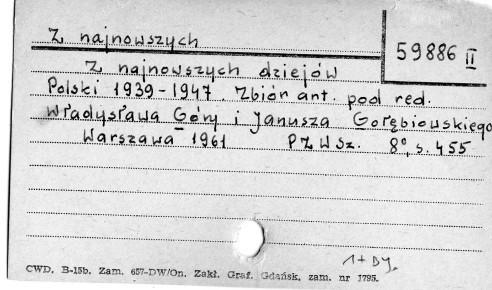 Z najnowszych
59886 II
Z najnowszych dziejów
Polski 1939-1947. Zbiór art. pod red.
Władysława Góry i Janusza Gołębiowskiego
Warszawa 1961 PZWSz. 8°, s. 455
1+Dy.
CWD. B-15b. Zam. 657-DW/On. Zakł. Graf. Gdańsk, zam. nr 1795.